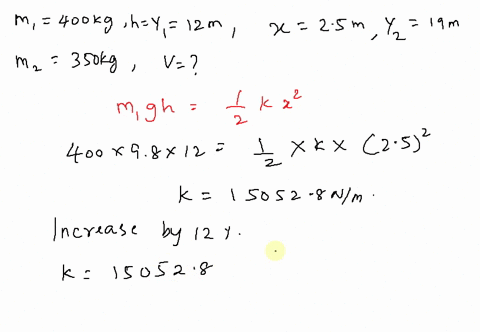 m₁ = 400kg, h = Y₁ = 12m, x = 2.5m, Y₂ = 19m
m₂ = 350kg, V = ?
m₁gh = 1/2 k x²
400 × 9.8 × 12 = 1/2 × k × (2.5)²
k = 15052.8 N/m.
Increase by 12 %.
k = 15052.8